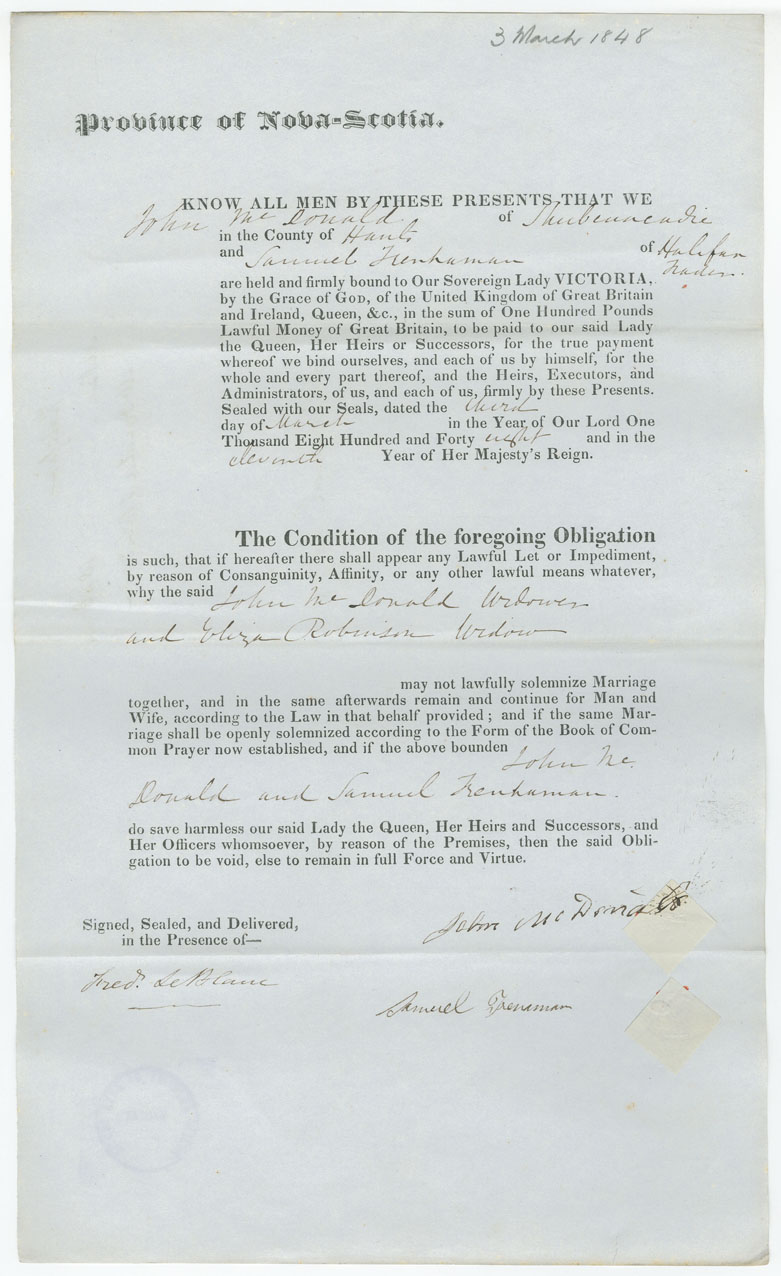 3 March 1848
Province of Nova-Scotia.
KNOW ALL MEN BY THESE PRESENTS THAT WE
John McDonald of Shubenacadie
in the County of Hants
and Samuel Trenhaman of Halifax
Trader.
are held and firmly bound to Our Sovereign Lady VICTORIA,
by the Grace of GOD, of the United Kingdom of Great Britain
and Ireland, Queen, &c., in the sum of One Hundred Pounds
Lawful Money of Great Britain, to be paid to our said Lady
the Queen, Her Heirs or Successors, for the true payment
whereof we bind ourselves, and each of us by himself, for the
whole and every part thereof, and the Heirs, Executors, and
Administrators, of us, and each of us, firmly by these Presents.
Sealed with our Seals, dated the third
day of March in the Year of Our Lord One
Thousand Eight Hundred and Forty eight and in the
eleventh Year of Her Majesty's Reign.
The Condition of the foregoing Obligation
is such, that if hereafter there shall appear any Lawful Let or Impediment,
by reason of Consanguinity, Affinity, or any other lawful means whatever,
why the said John McDonald Widower
and Eliza Robinson Widow
may not lawfully solemnize Marriage
together, and in the same afterwards remain and continue for Man and
Wife, according to the Law in that behalf provided; and if the same Mar-
riage shall be openly solemnized according to the Form of the Book of Com-
mon Prayer now established, and if the above bounden John Mc
Donald and Samuel Trenhaman.
do save harmless our said Lady the Queen, Her Heirs and Successors, and
Her Officers whomsoever, by reason of the Premises, then the said Obli-
gation to be void, else to remain in full Force and Virtue.
Signed, Sealed, and Delivered,
in the Presence of—
John McDonald
Fredk LeBlanc
Samuel